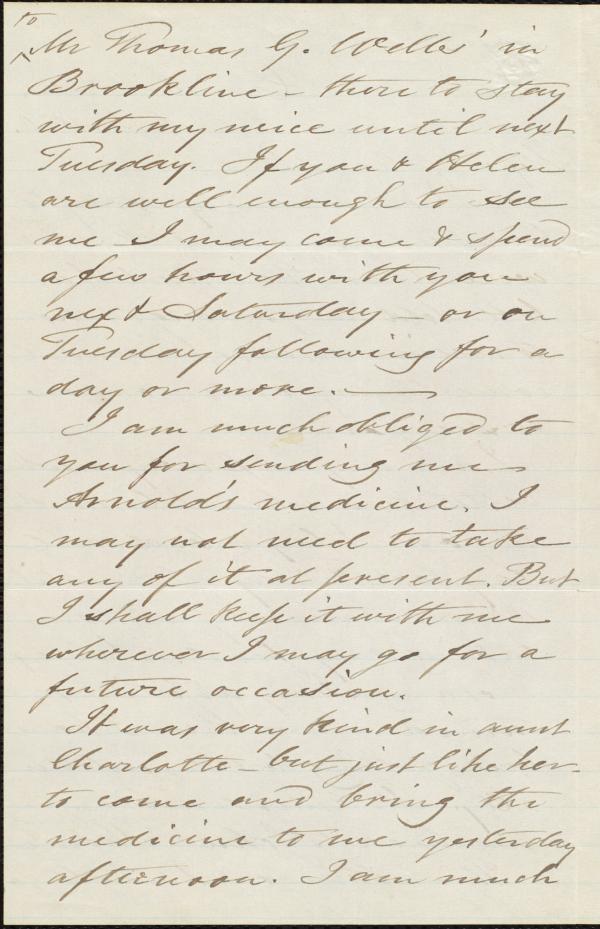 to
^ Mr Thomas G. Wells' in
Brookline - there to stay
with my neice until next
Tuesday. If you & Helen
are well enough to see
me I may come & spend
a few hours with you
next Saturday - or on
Tuesday following for a
day or more. —
I am much obliged to
you for sending me
Arnold's medicine. I
may not need to take
any of it at present. But
I shall keep it with me
wherever I may go for a
future occasion.
It was very kind in aunt
Charlotte - but just like her -
to come and bring the
medicine to me yesterday
afternoon. I am much